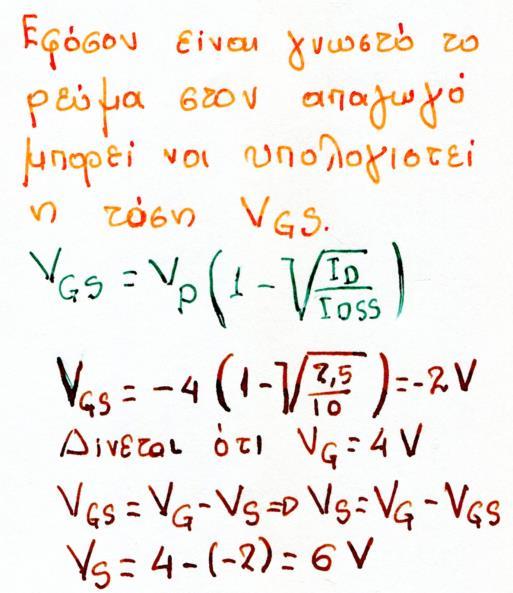 Εφόσον είναι γνωστό το
ρεύμα στον απαγωγό
μπορεί να υπολογιστεί
η τάση VGS.
VGS = Vp(1 - √(ID/IDSS))
VGS = -4 (1-√(2,5/10)) = -2 V
Δίνεται ότι VG = 4 V
VGS = VG - VS => VS = VG - VGS
VS = 4 - (-2) = 6 V